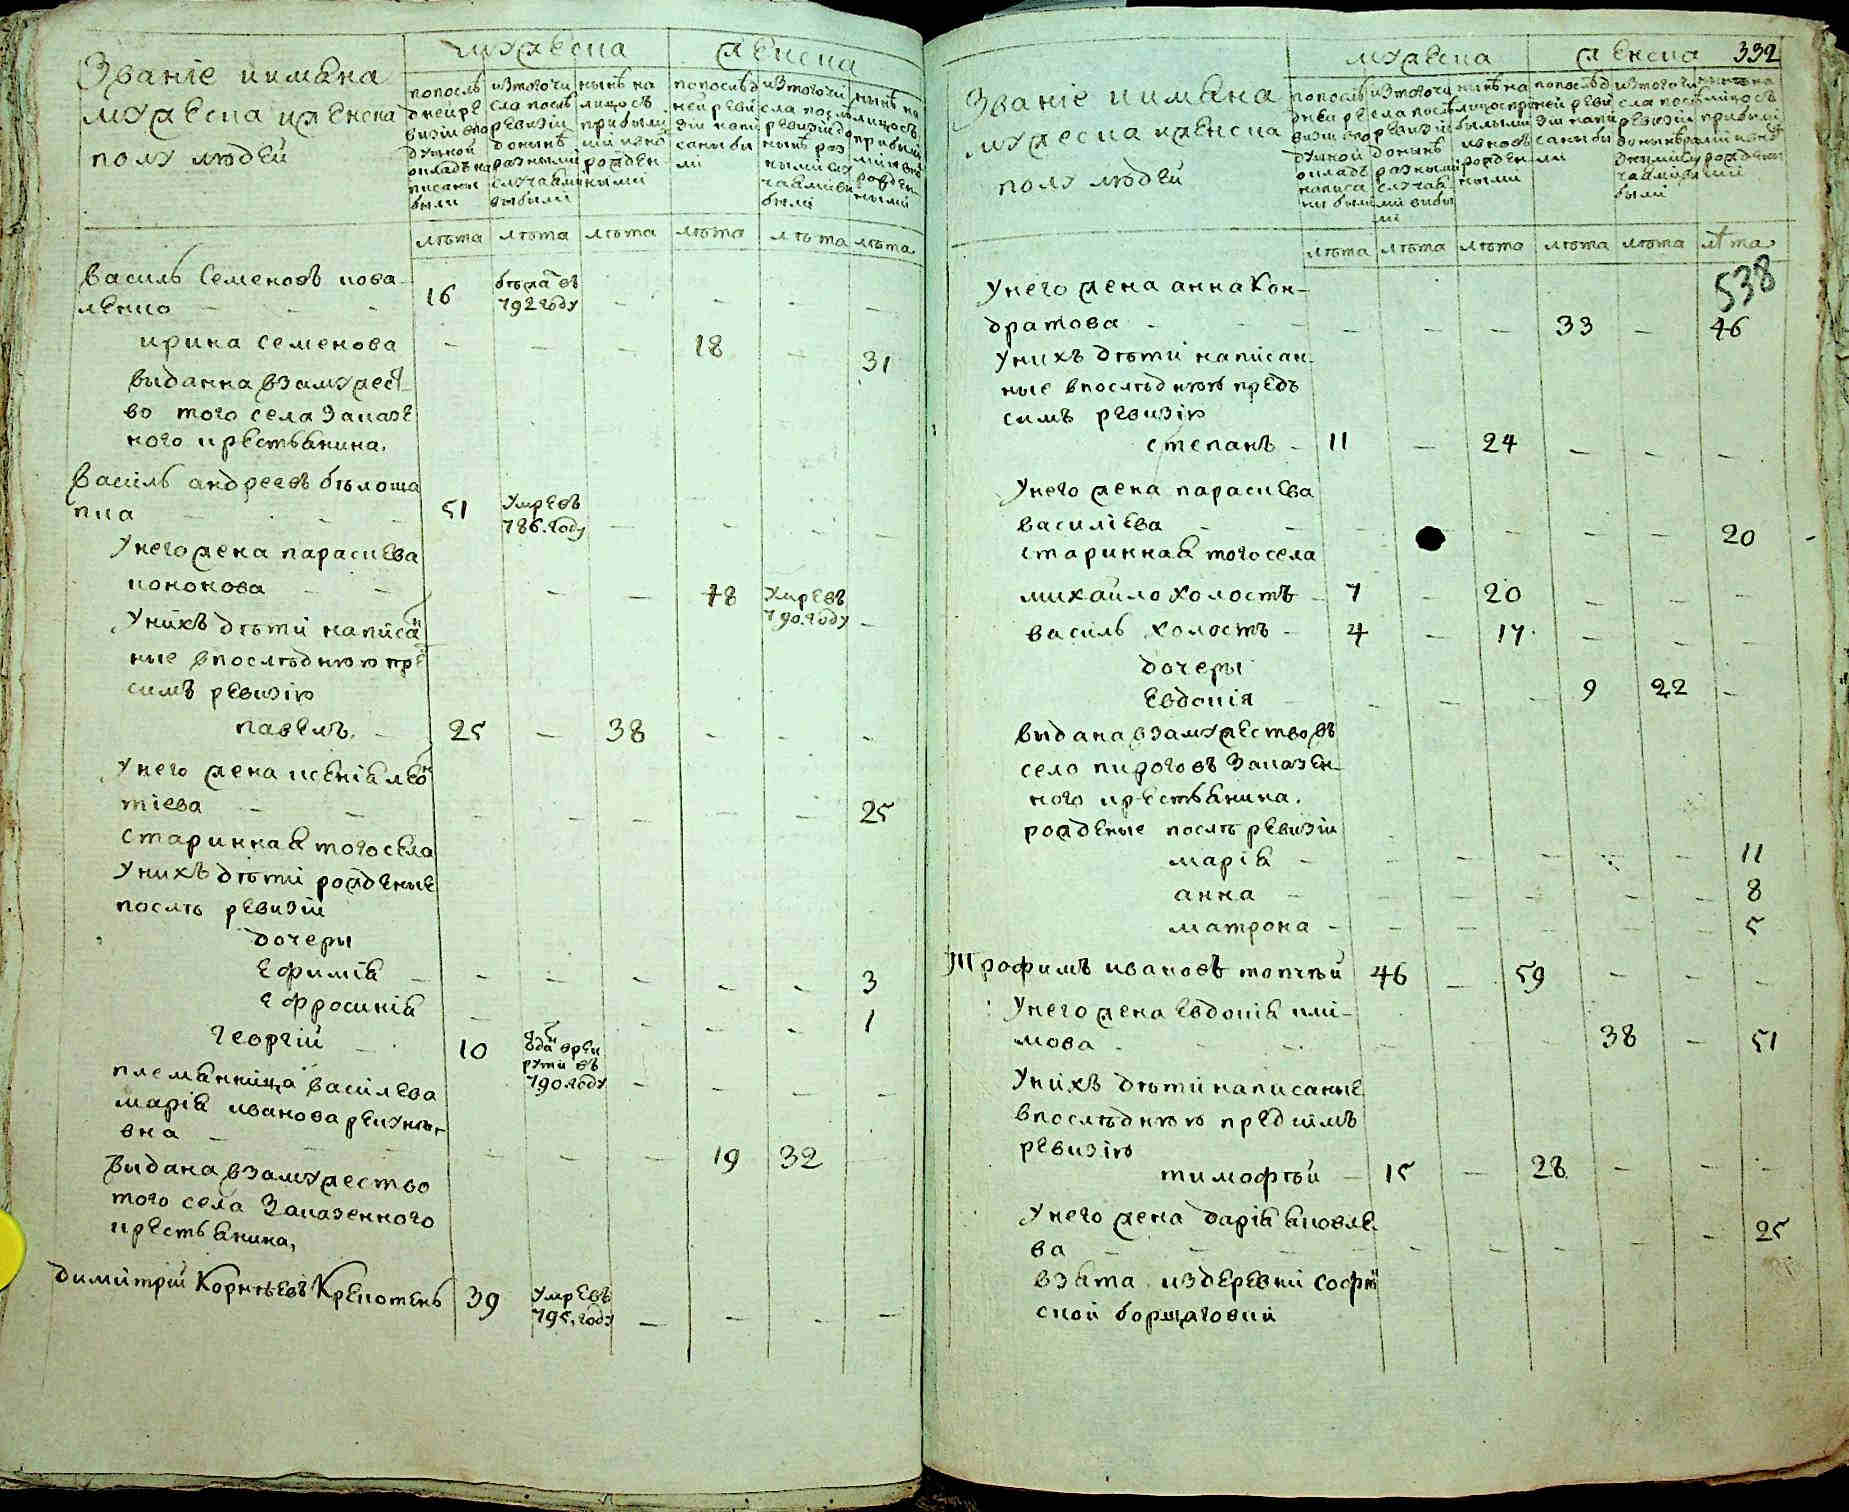 Званіе иимяна
мужеска иженска
полу людей
мужеска
женска
попослѣ
дней ре
визіи впо
душной
окладъ на
писаны
были
изтого чи
сла послѣ
ревизіи
донынѣ
разными
случаями
выбыли
нынѣ на
лицо съ
прибыли
ми и вно
рожден
ными
попослѣд
ней реви
зіи напи
саны бы
ли
изтого чи
сла послѣ
ревизіи до
нынѣ раз
ными слу
чаями вы
были
нынѣ на
лицо съ
прибыли
ми и вно
рожден
ными
лѣта лѣта лѣта лѣта лѣта лѣта
василь Семеновъ кова-
ленко - 16 бѣжа въ 792 году - - - -
ирина семенова - - - 18 - 31
выданна взамужест
во того села Заказе
ного крестьянина.
василь андреевъ бѣлоша
пка - 51 умре въ 786. году - - - -
Унего жена параскева
кононова - - - 48 умре въ 790. году -
Унихъ дѣти написа
ные впослѣднюю пре
симъ ревизію
павелъ. - 25 - 38 - - -
Унего жена ксенія лео
тіева - - - - - 25
старинная того села
Унихъ дѣти рожденые
послѣ ревизіи
дочеры
ефимія - - - - - 3
ефросинія - - - - - 1
Георгій - 10 ѿдан врек рути въ 790 году - - - -
племянница василева
марія иванова
вна - - - - 19 32 -
выдана взамужество
того села Заказенного
крестьянина,
димитрій Корнѣевъ Крекотень 39 умре въ 795, году - - - -
332
Званіе иимяна
мужеска иженска
полу людей
мужеска
женска
попослѣ
дней ре
визіи впо
душной
окладъ
написа
ны были
изтого чи
сла послѣ
ревизіи
донынѣ
разными
случая
ми выбы
ли
нынѣ на
лицо при
былыми
ивновь
рожден
ными
попослѣд
ней реви
зіи напи
саны бы
ли
изтого чи
сла послѣ
ревизіи
донынѣ раз
ными слу
чаями вы
были
нынѣ на
лицо съ
прибыл
ми ивновь
рожденны
ми
лѣта лѣта лѣта лѣта лѣта лѣта
538
Унего жена анна Кон-
дратова - - - - 33 - 46
Унихъ дѣти написан
ные впослѣднюю предъ
симъ ревизію
степанъ - 11 - 24 - - -
Унего жена параскева
василіева - - - - - 20
старинная того села
михайло холостъ - 7 - 20 - - -
василь холостъ - 4 - 17. - - -
дочеры
евдокія - - - 9 22 -
выдана взамужество въ
село пироговъ Заказен
ного крестьянина.
рожденые послѣ ревизіи
марія - - - - - - 11
анна - - - - - - 8
матрона - - - - - - 5
Трофимъ ивановъ топчѣй 46 - 59 - - -
Унего жена евдокія кли-
мова - - - - 38 - 51
Унихъ дѣти написаные
впослѣднюю предсимъ
ревизію
тимофѣй - 15 - 28 - - -
Унего жена дарія яковле
ва - - - - - - 25
взята издеревни софій
ской борщаговки